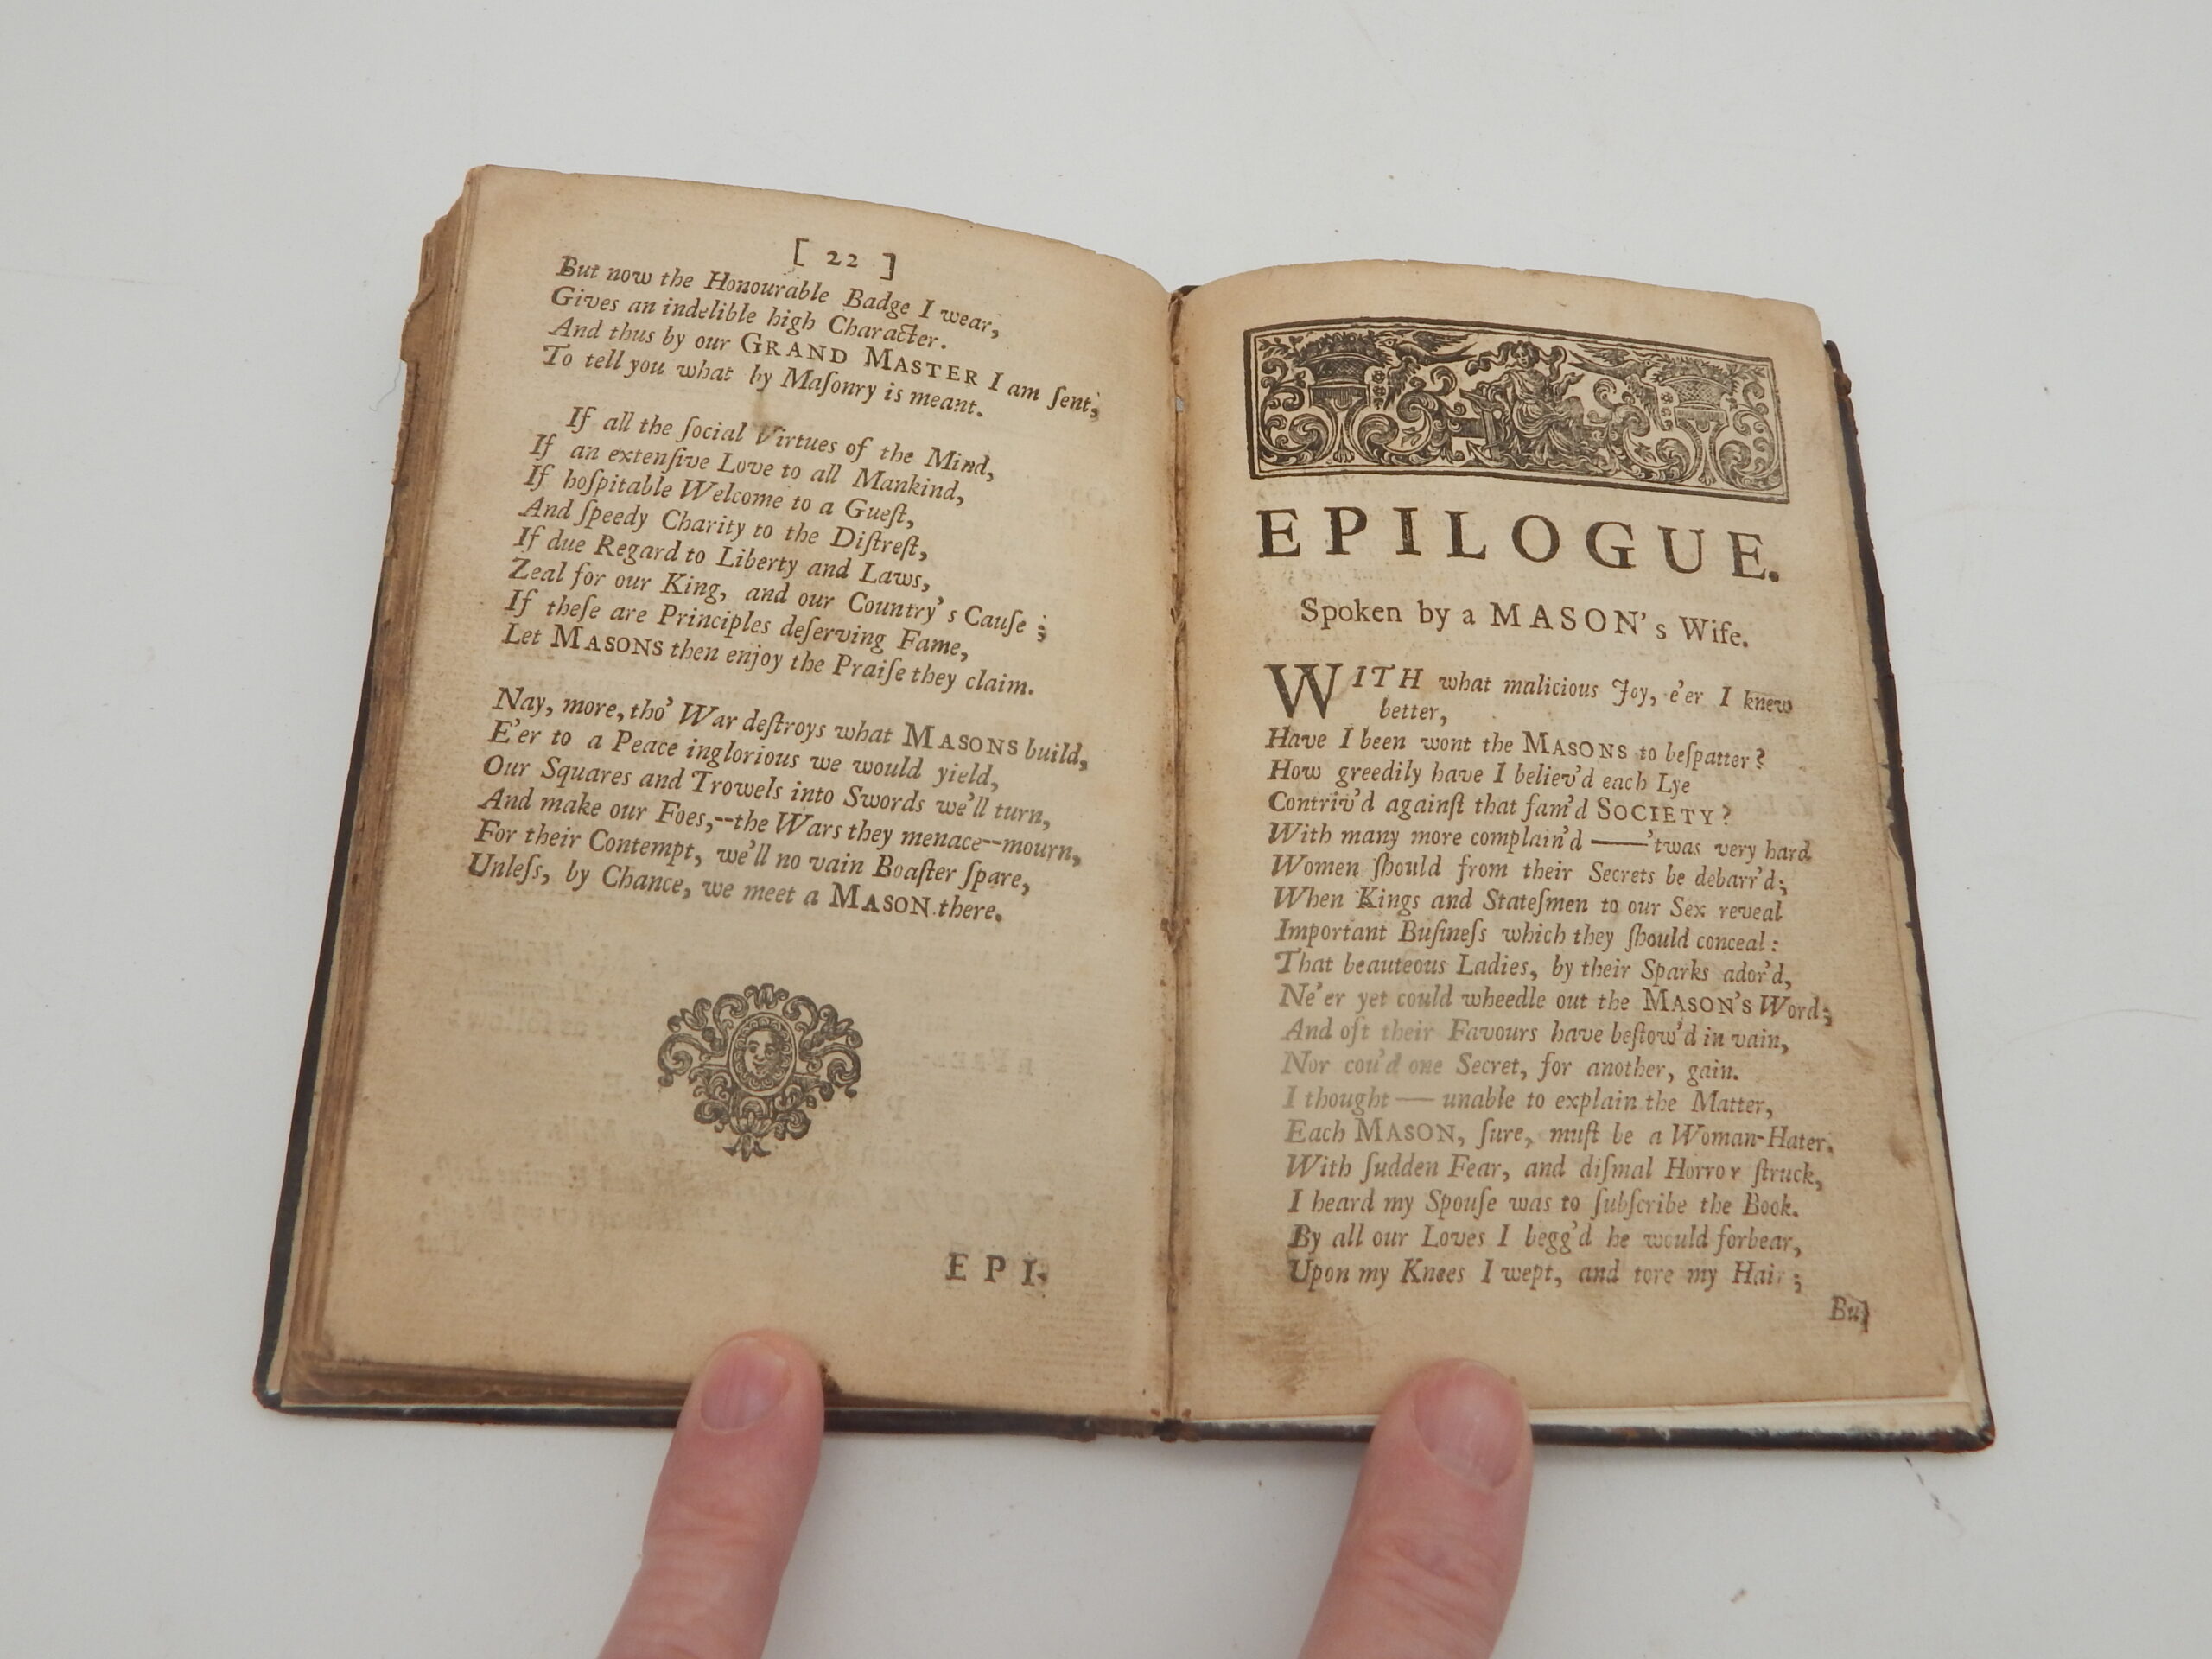 [ 22 ]
But now the Honourable Badge I wear,
Gives an indelible high Character.
And thus by our GRAND MASTER I am ſent,
To tell you what by Maſonry is meant.
If all the ſocial Virtues of the Mind,
If an extenſive Love to all Mankind,
If hoſpitable Welcome to a Gueſt,
And ſpeedy Charity to the Diſtreſt,
If due Regard to Liberty and Laws,
Zeal for our King, and our Country's Cauſe ;
If theſe are Principles deſerving Fame,
Let MASONS then enjoy the Praiſe they claim.
Nay, more, tho' War deſtroys what MASONS build,
E'er to a Peace inglorious we would yield,
Our Squares and Trowels into Swords we'll turn,
And make our Foes,--the Wars they menace--mourn,
For their Contempt, we'll no vain Boaſter ſpare,
Unleſs, by Chance, we meet a MASON there.
EPI-
EPILOGUE.
Spoken by a MASON's Wife.
WITH what malicious Joy, e'er I knew
better,
Have I been wont the MASONS to beſpatter?
How greedily have I believ'd each Lye
Contriv'd againſt that fam'd SOCIETY?
With many more complain'd —— 'twas very hard
Women ſhould from their Secrets be debarr'd;
When Kings and Stateſmen to our Sex reveal
Important Buſineſs which they ſhould conceal :
That beauteous Ladies, by their Sparks ador'd,
Ne'er yet could wheedle out the MASON'S Word;
And oft their Favours have beſtow'd in vain,
Nor cou'd one Secret, for another, gain.
I thought — unable to explain the Matter,
Each MASON, ſure, muſt be a Woman-Hater.
With ſudden Fear, and diſmal Horror ſtruck,
I heard my Spouſe was to ſubſcribe the Book.
By all our Loves I begg'd he would forbear,
Upon my Knees I wept, and tore my Hair ;
But